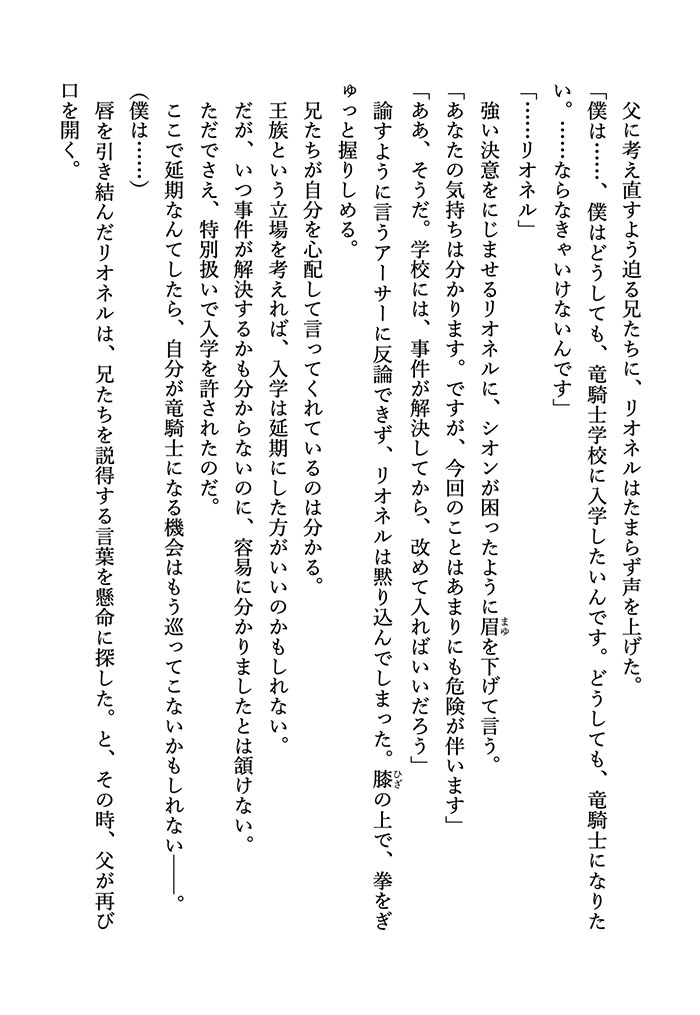 父に考え直すよう迫る兄たちに、リオネルはたまらず声を上げた。
「僕は……、僕はどうしても、竜騎士学校に入学したいんです。どうしても、竜騎士になりた
い。……ならなきゃいけないんです」
「……リオネル」
強い決意をにじませるリオネルに、シオンが困ったように眉を下げて言う。
まゆ
「あなたの気持ちは分かります。ですが、今回のことはあまりにも危険が伴います」
「ああ、そうだ。学校には、事件が解決してから、改めて入ればいいだろう」
諭すように言うアーサーに反論できず、リオネルは黙り込んでしまった。膝の上で、拳をぎ
ひざ
ゅっと握りしめる。
兄たちが自分を心配して言ってくれているのは分かる。
王族という立場を考えれば、入学は延期にした方がいいのかもしれない。
だが、いつ事件が解決するかも分からないのに、容易に分かりましたとは頷けない。
ただでさえ、特別扱いで入学を許されたのだ。
ここで延期なんてしたら、自分が竜騎士になる機会はもう巡ってこないかもしれない――。
(僕は……)
唇を引き結んだリオネルは、兄たちを説得する言葉を懸命に探した。と、その時、父が再び
口を開く。